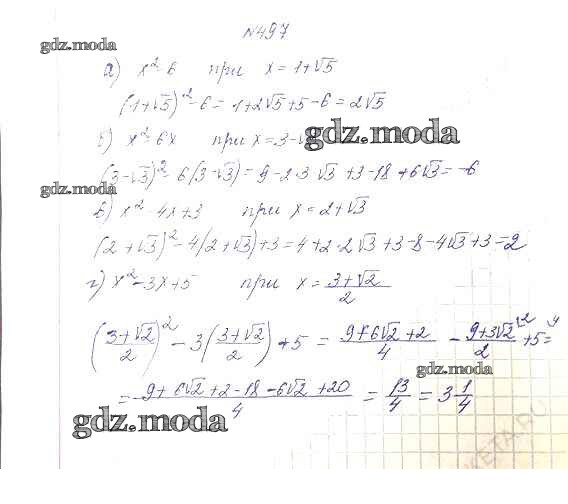 №497
gdz.moda
а) x²-6 при x = 1+√5
(1+√5)²-6 = 1+2√5+5-6 = 2√5
б) x²-6x при x = 3-√
gdz.moda
(3-√3)²-6(3-√3) = 9-2·3√3+3-18+6√3 = -6
gdz.moda
в) x²-4x+3 при x = 2+√3
(2+√3)²-4(2+√3)+3 = 4+2·2√3+3-8-4√3+3 = 2
г) x²-3x+5 при x = (3+√2)/2
((3+√2)/2)² - 3((3+√2)/2) + 5 = (9+6√2+2)/4 - (9+3√2)/2 + 5 =
gdz.moda
= (9+6√2+2-18-6√2+20)/4 = 13/4 = 3 1/4
gdz.moda